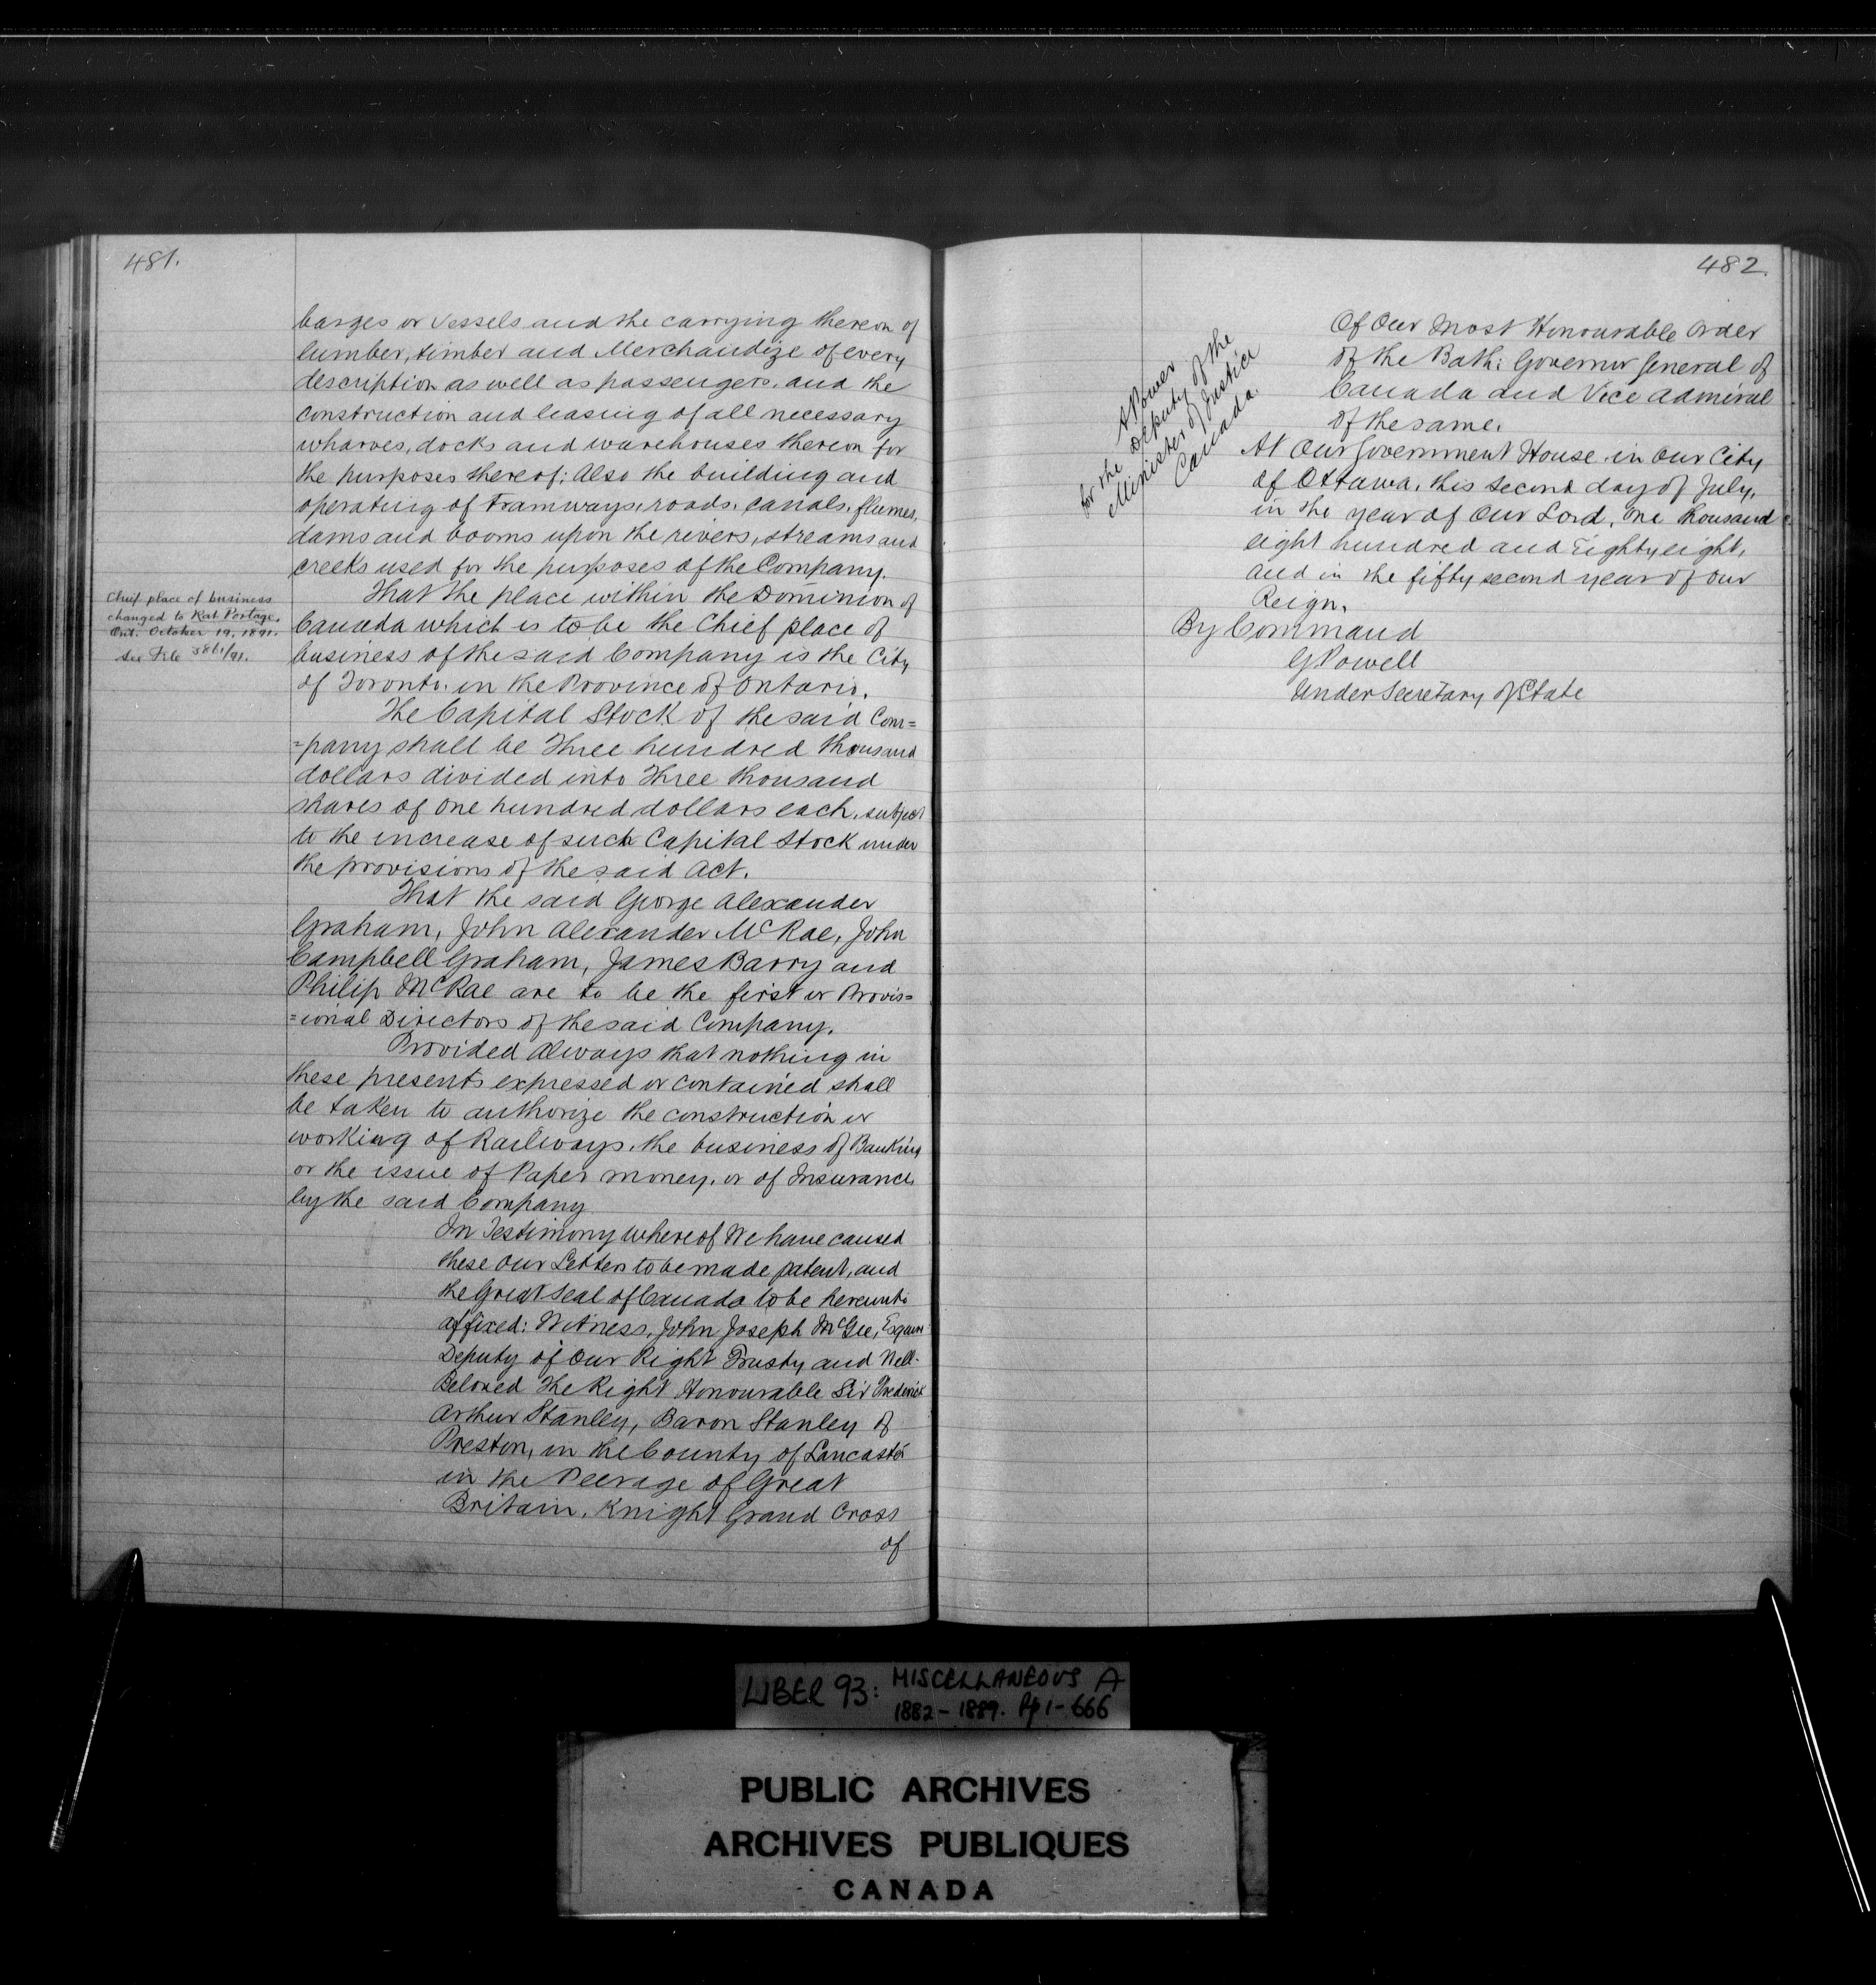 481.
barges or vessels and the carrying thereon of
lumber, timber and Merchandize of every
description as well as passengers, and the
construction and leasing of all necessary
wharves, docks and warehouses thereon for
the purposes thereof; Also the building and
operating of Tramways, roads, canals, flumes,
dams and booms upon the rivers, streams and
creeks used for the purposes of the Company.
Chief place of business
changed to Rat Portage,
Ont. October 19, 1891.
See File 3861/91.
That the place within the Dominion of
Canada which is to be the Chief place of
business of the said Company is the City
of Toronto, in the Province of Ontario.
The Capital Stock of the said Com=
=pany shall be Three hundred thousand
dollars divided into Three thousand
shares of one hundred dollars each, subject
to the increase of such Capital Stock under
the provisions of the said Act.
That the said George Alexander
Graham, John Alexander McRae, John
Campbell Graham, James Barry and
Philip McRae are to be the first or Provis=
=ional Directors of the said Company.
Provided Always that nothing in
these presents expressed or contained shall
be taken to authorize the construction or
working of Railways, the business of Banking
or the issue of Paper money, or of Insurance
by the said Company
In Testimony whereof We have caused
these Our Letters to be made patent, and
the Great Seal of Canada to be hereunto
affixed: Witness, John Joseph McGee, Esquire
Deputy of Our Right Trusty and Well-
Beloved The Right Honourable Sir Frederick
Arthur Stanley, Baron Stanley of
Preston, in the County of Lancaster
in the Peerage of Great
Britain, Knight Grand Cross
of
482.
A Power
for the Deputy of the
Minister of Justice
Canada.
Of Our Most Honourable Order
of the Bath: Governor General of
Canada and Vice Admiral
of the same.
At Our Government House in Our City
of Ottawa, this second day of July,
in the year of Our Lord, One thousand
eight hundred and Eighty eight,
and in the fifty second year of Our
Reign.
By Command
G Powell
Under Secretary of State
LIBER 93: MISCELLANEOUS A
1882-1889. Pp 1-666
PUBLIC ARCHIVES
ARCHIVES PUBLIQUES
CANADA